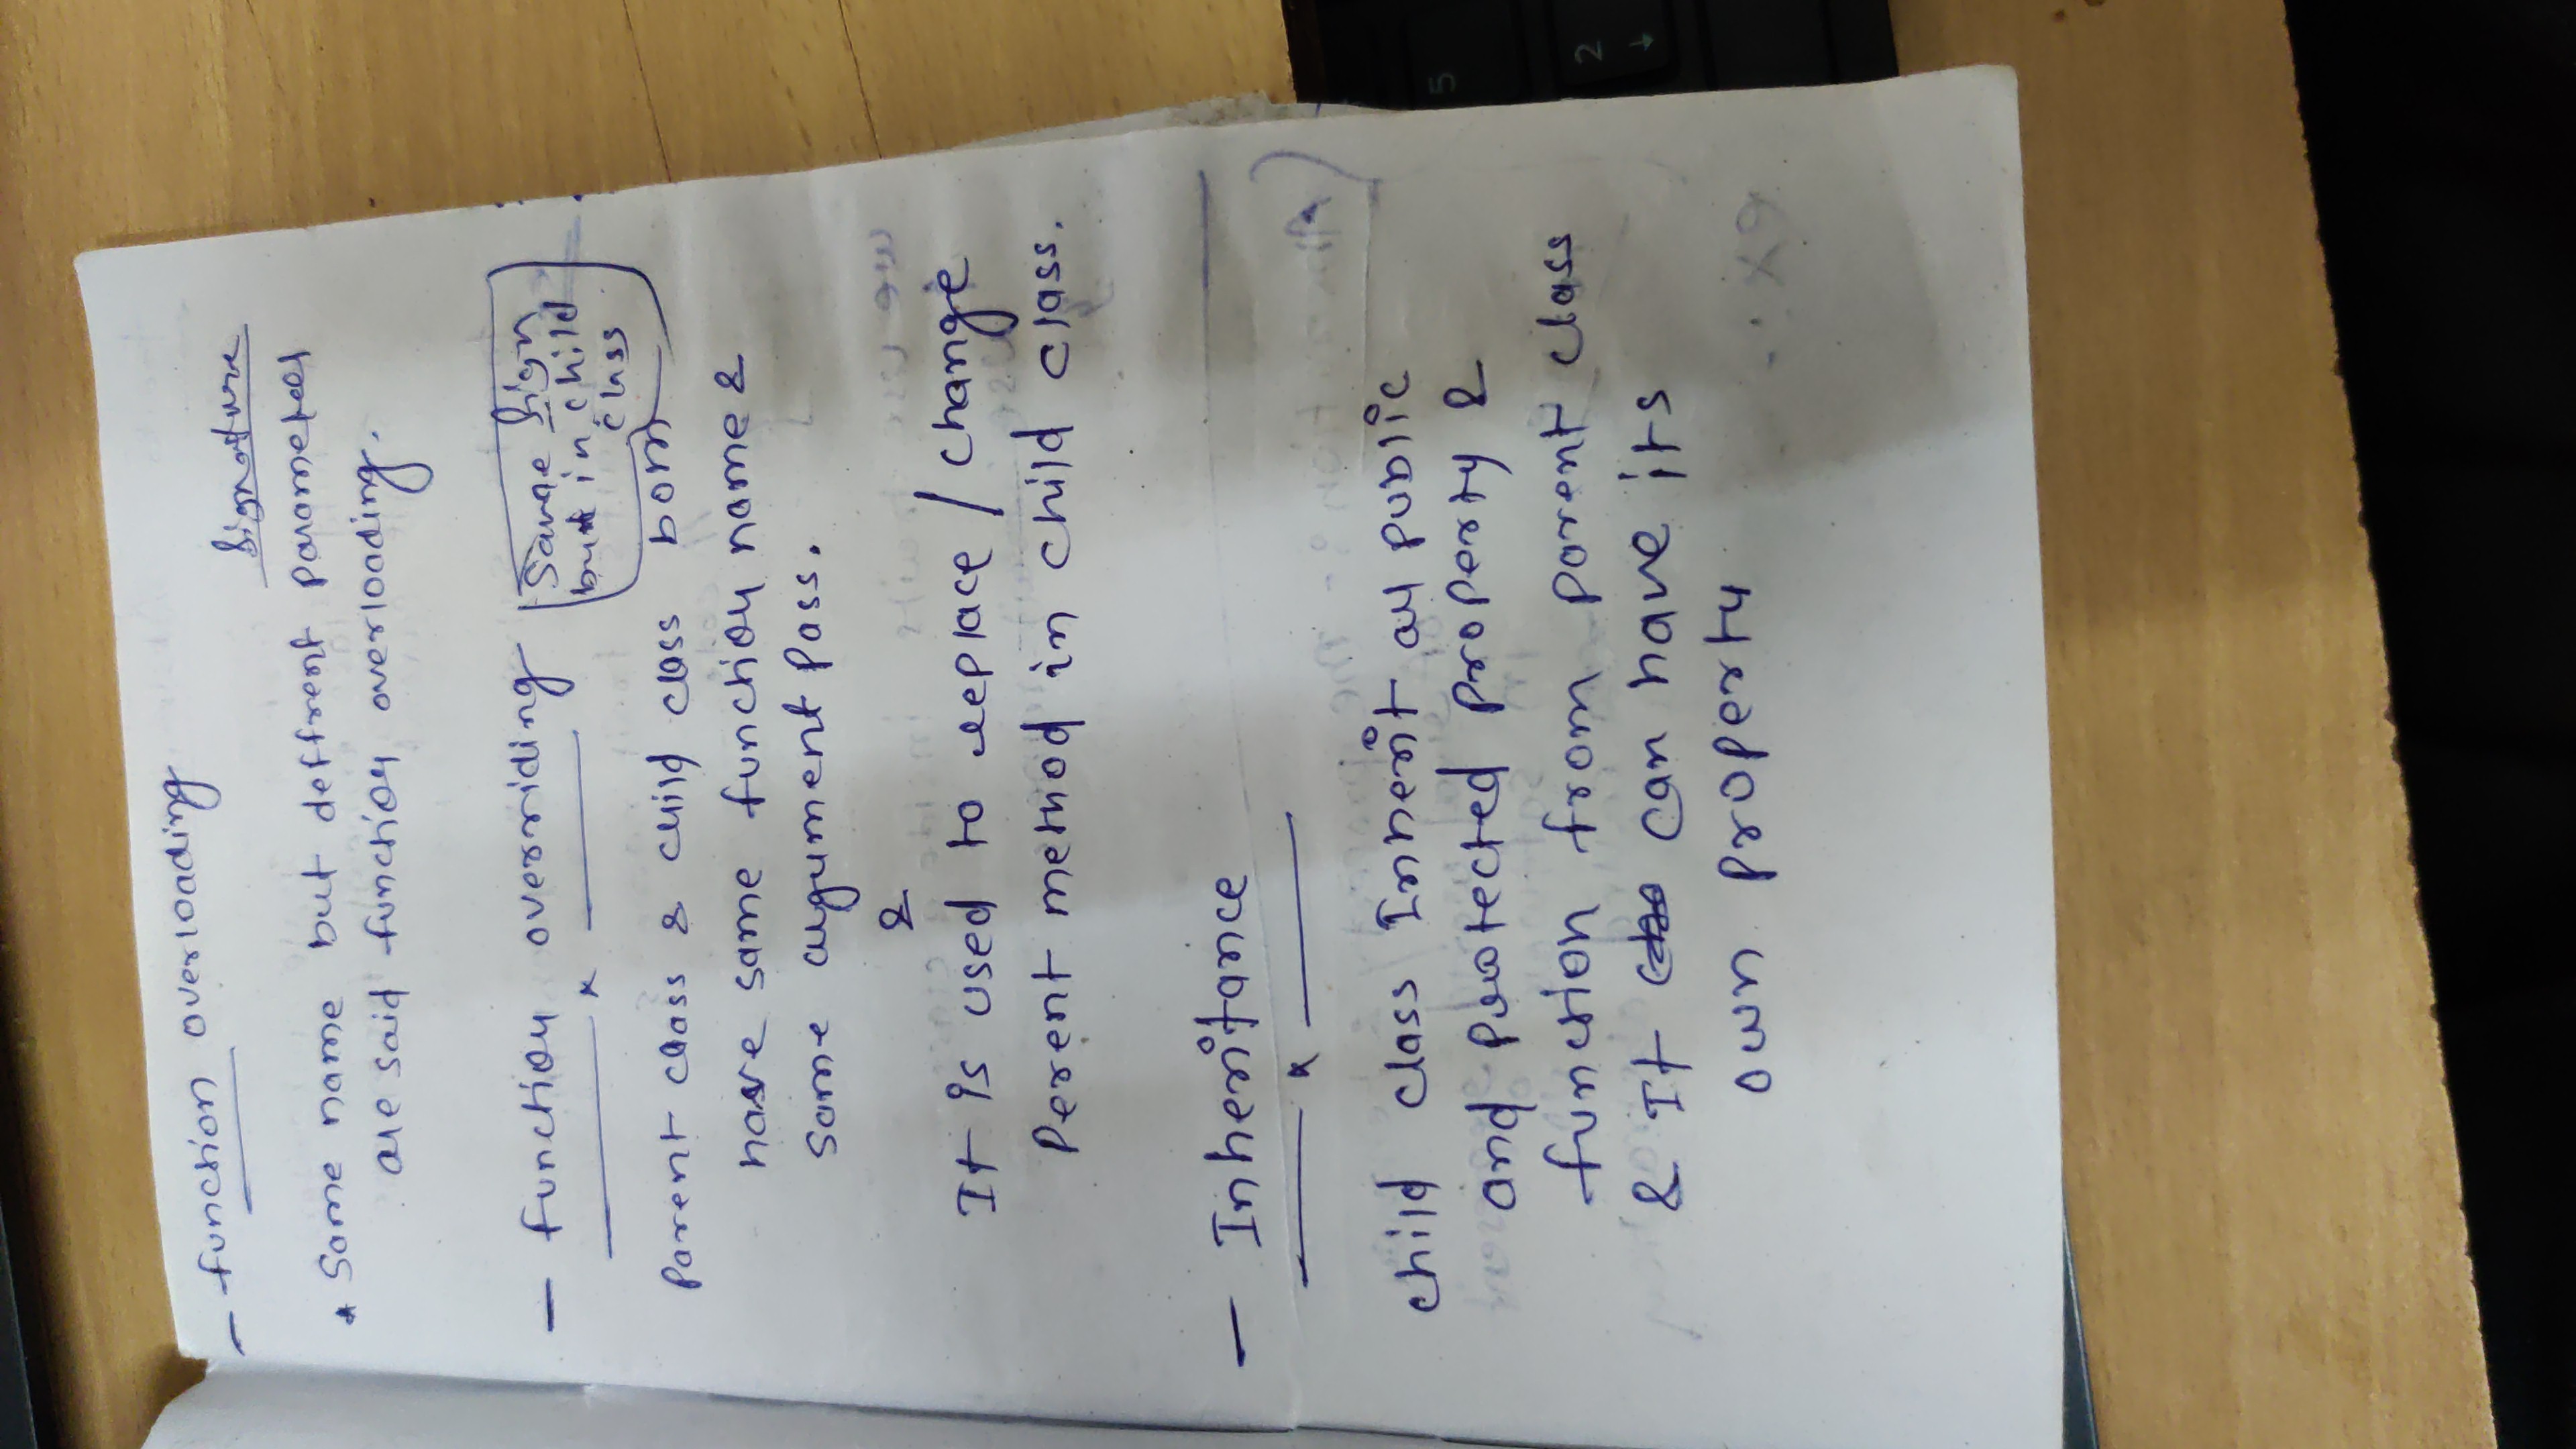 - function overloading
Signature
* Same name but deffrent parameters
are said function overloading.
- function overriding
Same Sign
but in child
class
Parent class & child class both
have same function name &
same argument Pass.
&
It is used to replace / change
Perent method in child class.
- Inheritance
child class Inherit all public
and protected property &
function from parent class
& It can have its
own property
5
2
↓